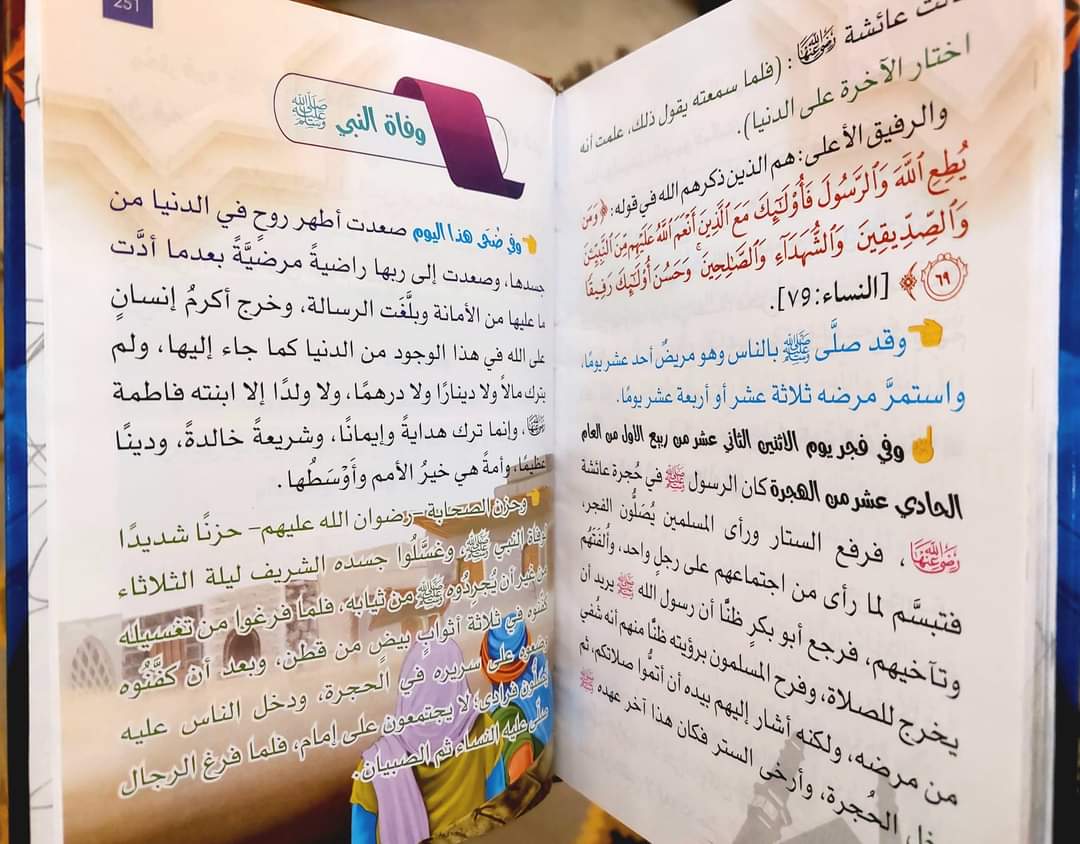 عائشة رَضِيَ اللَّهُ عَنْهَا: (فلما سمعته يقول ذلك، علمت أنه
اختار الآخرة على الدنيا).
والرفيق الأعلى: هم الذين ذكرهم الله في قوله: ﴿وَمَن
يُطِعِ ٱللَّهَ وَٱلرَّسُولَ فَأُوْلَٰٓئِكَ مَعَ ٱلَّذِينَ أَنْعَمَ ٱللَّهُ عَلَيْهِم مِّنَ ٱلنَّبِيِّـۧنَ
وَٱلصِّدِّيقِينَ وَٱلشُّهَدَآءِ وَٱلصَّٰلِحِينَۚ وَحَسُنَ أُوْلَٰٓئِكَ رَفِيقًا
٦٩﴾ [النساء: ٦٩].
وقد صلَّى ﷺ بالناس وهو مريضٌ أحد عشر يومًا،
واستمرَّ مرضه ثلاثة عشر أو أربعة عشر يومًا.
وفي فجر يوم الاثنين الثاني عشر من ربيع الأول من العام
الحادي عشر من الهجرة كان الرسول ﷺ في حُجرة عائشة
رَضِيَ اللَّهُ عَنْهَا، فرفع الستار ورأى المسلمين يُصَلُّون الفجر،
فتبسَّم لما رأى من اجتماعهم على رجلٍ واحد، وأُلفَتهُم
وتآخيهم، فرجع أبو بكرٍ ظنًّا أن رسول الله ﷺ يريد أن
يخرج للصلاة، وفرح المسلمون برؤيته ظنًّا منهم أنه شُفي
من مرضه، ولكنه أشار إليهم بيده أن أتمُّوا صلاتكم، ثم
الحُجرة، وأرخى الستر فكان هذا آخر عهده ﷺ
251
وفاة النبي ﷺ
وفي ضُحَى هذا اليوم صعدت أطهر روحٍ في الدنيا من
جسدها، وصعدت إلى ربها راضيةً مرضيَّةً بعدما أدَّت
ما عليها من الأمانة وبلَّغَت الرسالة، وخرج أكرمُ إنسانٍ
على الله في هذا الوجود من الدنيا كما جاء إليها، ولم
يترك مالاً ولا دينارًا ولا درهمًا، ولا ولدًا إلا ابنته فاطمة
، وإنما ترك هدايةً وإيمانًا، وشريعةً خالدةً، ودينًا
عظيمًا، وأمةً هي خيرُ الأمم وأَوْسَطُها.
وحزن الصحابة -رضوان الله عليهم- حزنًا شديدًا
لوفاة النبي ﷺ، وغسَّلُوا جسده الشريف ليلة الثلاثاء
من غير أن يُجردُوه ﷺ من ثيابه، فلما فرغوا من تغسيله
كفَّنُوه في ثلاثة أثوابٍ بيض من قطن، وبعد أن كفَّنُوه
وضعوه على سريره في الحجرة، ودخل الناس عليه
يُصلُّون فرادى؛ لا يجتمعون على إمام، فلما فرغ الرجال
صلَّى عليه النساء ثم الصبيان.